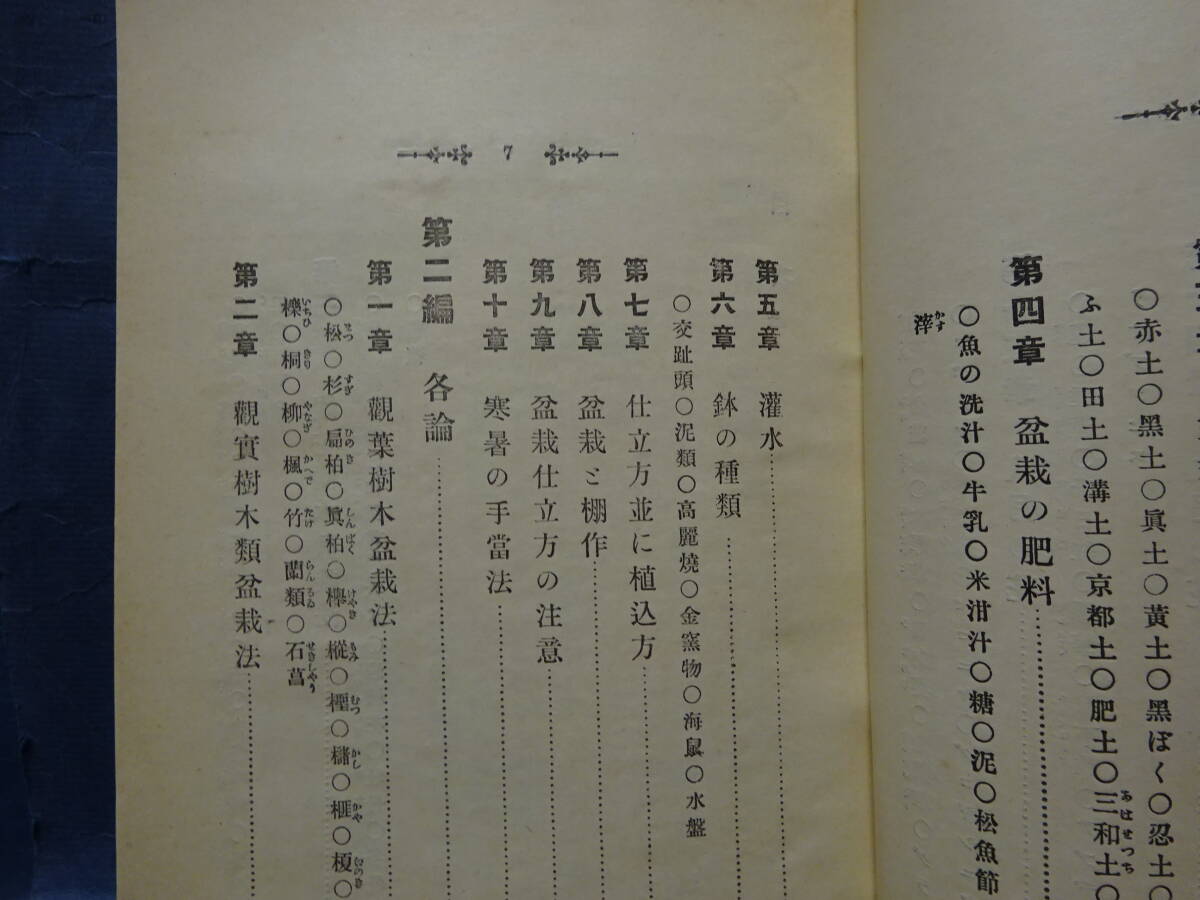 ○赤土○黑土○眞土○黃土○黑ぼく○忍土○
ふ土○田土○溝土○京都土○肥土○三和土○
第四章 盆栽の肥料
○魚の洗汁○牛乳○米泔汁○糖○泥○松魚節
滓
7
第五章 灌水
第六章 鉢の種類
○交趾頭○泥類○高麗燒○金窯物○海鼠○水盤
第七章 仕立方並に植込方
第八章 盆栽と棚作
第九章 盆栽仕立方の注意
第十章 寒暑の手當法
第二編 各論
第一章 觀葉樹木盆栽法
○松○杉○扁柏○眞柏○欅○樅○檉○櫧○榧○榎○
櫟○桐○柳○楓○竹○蘭類○石菖
第二章 觀實樹木類盆栽法